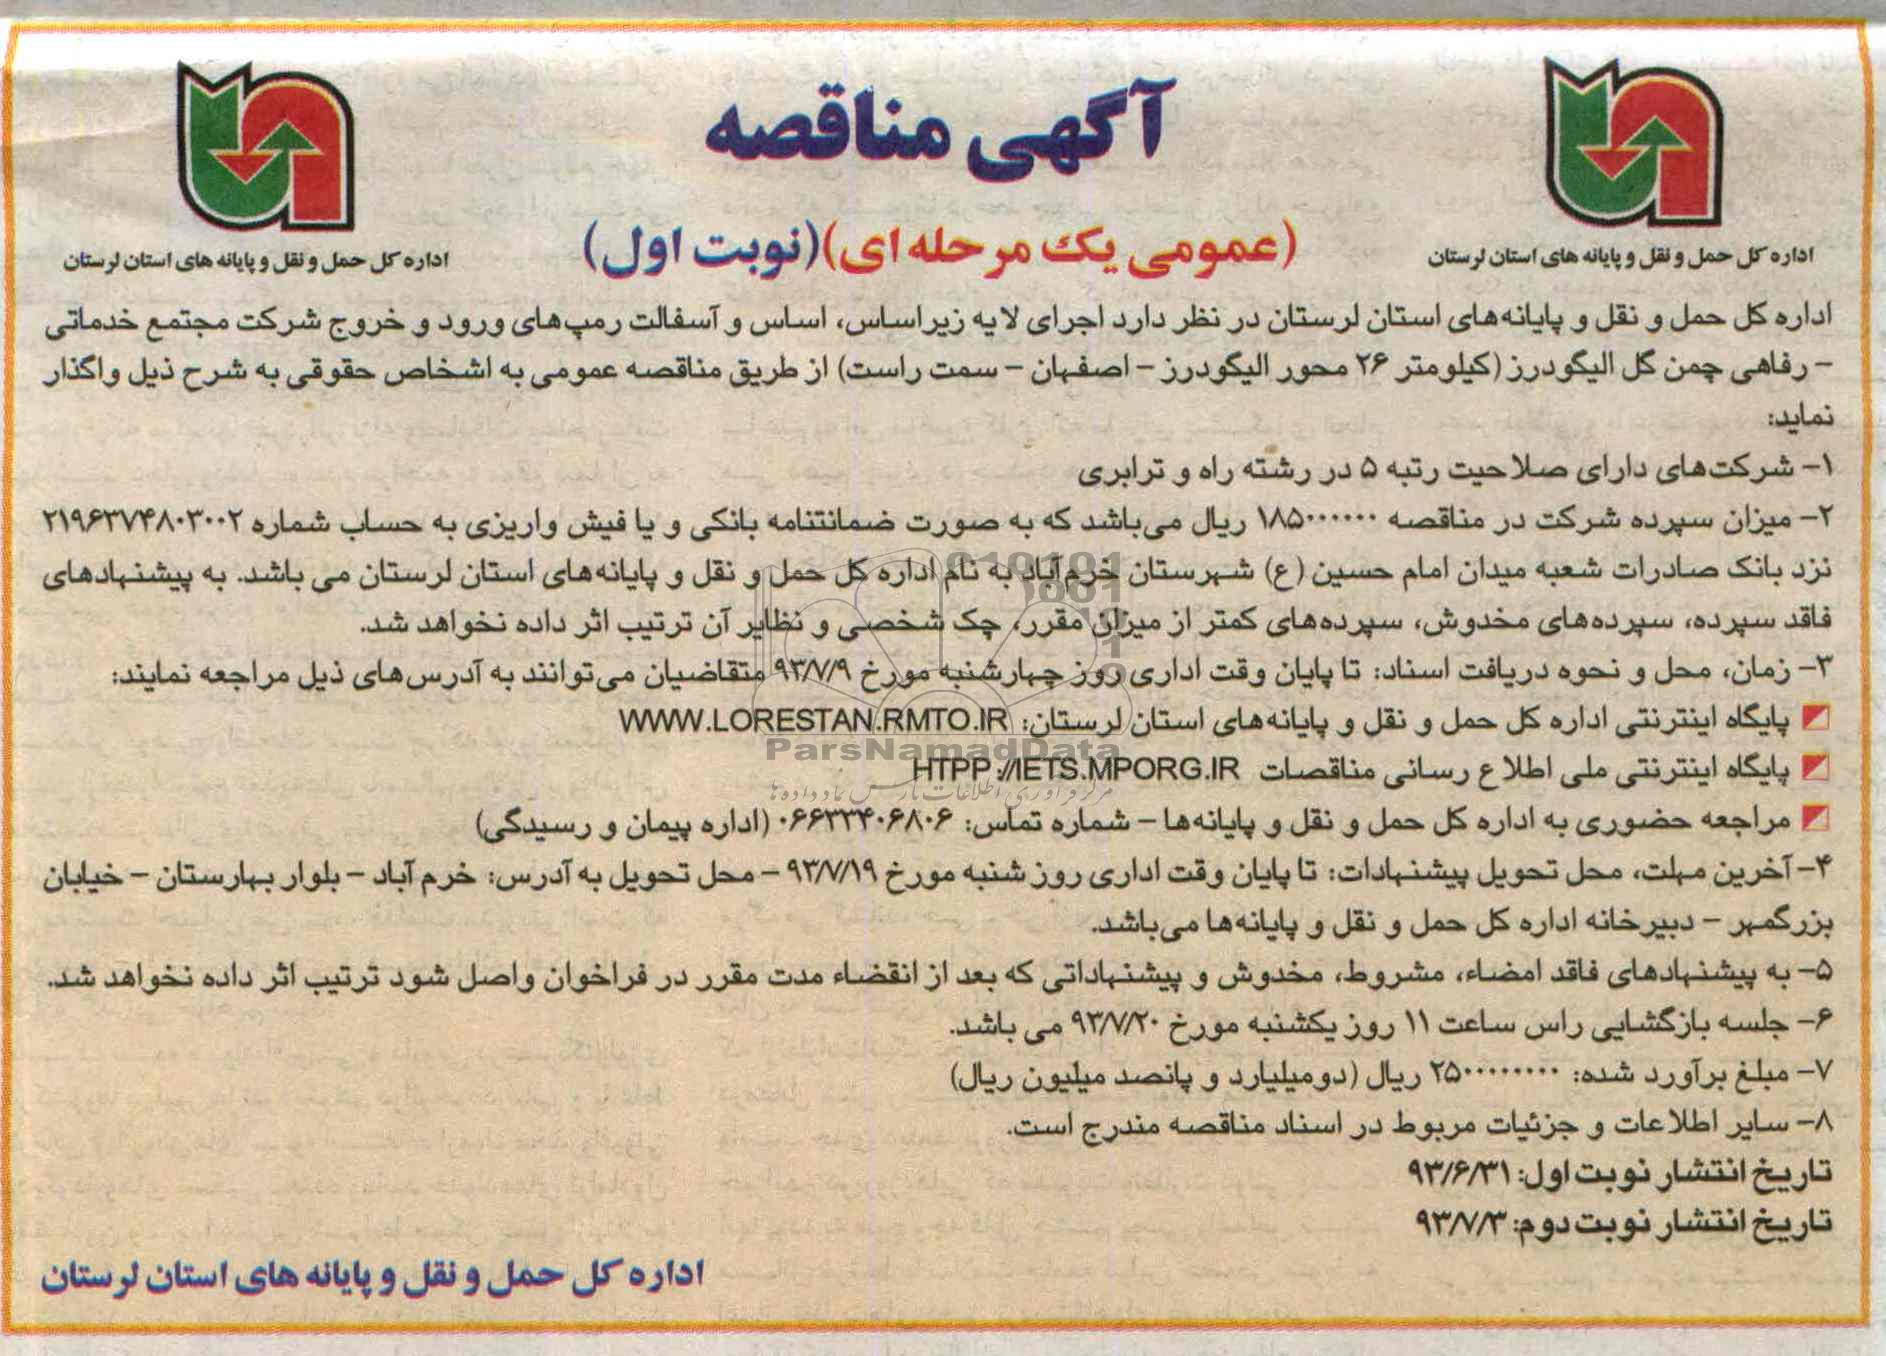 آگهی مناقصه
(عمومی یک مرحله ای)(نوبت اول)
اداره کل حمل و نقل و پایانه های استان لرستان
اداره کل حمل و نقل و پایانه های استان لرستان
اداره کل حمل و نقل و پایانه‌های استان لرستان در نظر دارد اجرای لایه زیراساس، اساس و آسفالت رمپ‌های ورود و خروج شرکت مجتمع خدماتی
- رفاهی چمن گل الیگودرز (کیلومتر ۲۶ محور الیگودرز - اصفهان - سمت راست) از طریق مناقصه عمومی به اشخاص حقوقی به شرح ذیل واگذار
نماید:
۱- شرکت‌های دارای صلاحیت رتبه ۵ در رشته راه و ترابری
۲- میزان سپرده شرکت در مناقصه ۱۸۵۰۰۰۰۰۰ ریال می‌باشد که به صورت ضمانتنامه بانکی و یا فیش واریزی به حساب شماره ۲۱۹۶۳۷۴۸۰۳۰۰۲
نزد بانک صادرات شعبه میدان امام حسین (ع) شهرستان خرم‌آباد به نام اداره کل حمل و نقل و پایانه‌های استان لرستان می باشد. به پیشنهادهای
فاقد سپرده، سپرده‌های مخدوش، سپرده‌های کمتر از میزان مقرر، چک شخصی و نظایر آن ترتیب اثر داده نخواهد شد.
۳- زمان، محل و نحوه دریافت اسناد: تا پایان وقت اداری روز چهارشنبه مورخ ۹۳/۷/۹ متقاضیان می‌توانند به آدرس‌های ذیل مراجعه نمایند:
پایگاه اینترنتی اداره کل حمل و نقل و پایانه‌های استان لرستان: WWW.LORESTAN.RMTO.IR
ParsNamadData
پایگاه اینترنتی ملی اطلاع رسانی مناقصات HTPP://IETS.MPORG.IR
مرکز فرآوری اطلاعات پارس نماد داده‌ها
مراجعه حضوری به اداره کل حمل و نقل و پایانه‌ها - شماره تماس: ۰۶۶۳۳۴۰۶۸۰۶ (اداره پیمان و رسیدگی)
۴- آخرین مهلت، محل تحویل پیشنهادات: تا پایان وقت اداری روز شنبه مورخ ۹۳/۷/۱۹ - محل تحویل به آدرس: خرم آباد - بلوار بهارستان - خیابان
بزرگمهر - دبیرخانه اداره کل حمل و نقل و پایانه‌ها می‌باشد.
۵- به پیشنهادهای فاقد امضاء، مشروط، مخدوش و پیشنهاداتی که بعد از انقضاء مدت مقرر در فراخوان واصل شود ترتیب اثر داده نخواهد شد.
۶- جلسه بازگشایی راس ساعت ۱۱ روز یکشنبه مورخ ۹۳/۷/۲۰ می باشد.
۷- مبلغ برآورد شده: ۲۵۰۰۰۰۰۰۰۰ ریال (دومیلیارد و پانصد میلیون ریال)
۸- سایر اطلاعات و جزئیات مربوط در اسناد مناقصه مندرج است.
تاریخ انتشار نوبت اول: ۹۳/۶/۳۱
تاریخ انتشار نوبت دوم: ۹۳/۷/۳
اداره کل حمل و نقل و پایانه های استان لرستان